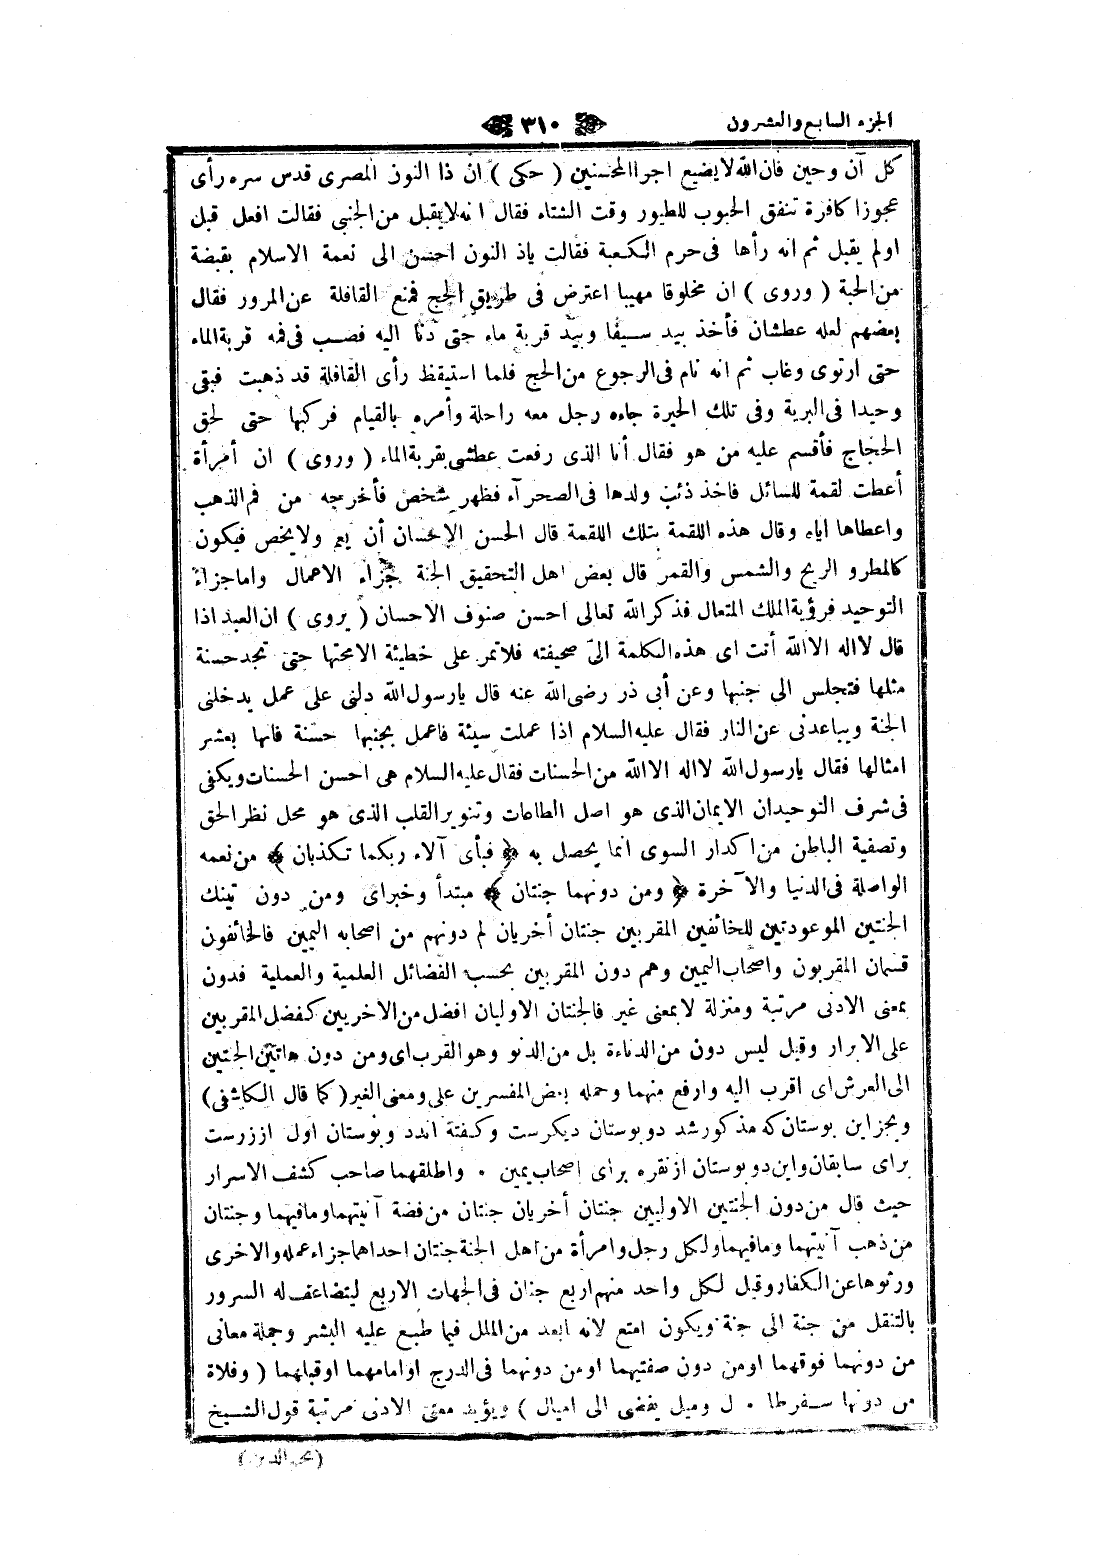 الجزء السابع والعشرون
٣١٠
كل آن وحين فان الله لا يضيع اجر المحسنين ( حكى ) ان ذا النون المصرى قدس سره رأى
عجوزا كافرة تنفق الحبوب للطيور وقت الشتاء فقال انه لا يقبل من الجنبى فقالت افعل قبل
اولم يقبل ثم انه رأها فى حرم الكعبة فقالت ياذ النون احسن الى نعمة الاسلام بقبضة
من الحبة ( وروى ) ان مخلوقا مهيبا اعترض فى طريق الحج فمنع القافلة عن المرور فقال
بعضهم لعله عطشان فأخذ بيد سيفا وبيد قربة ماء حتى دنا اليه فصب فى فمه قربة الماء
حتى ارتوى وغاب ثم انه نام فى الرجوع من الحج فلما استيقظ رأى القافلة قد ذهبت فبقى
وحيدا فى البرية وفى تلك الحيرة جاءه رجل معه راحلة وأمره بالقيام فركبها حتى لحق
الحجاج فأقسم عليه من هو فقال أنا الذى رفعت عطشى بقربة الماء ( وروى ) ان أمرأة
أعطت لقمة للسائل فاخذ ذئب ولدها فى الصحرآء فظهر شخص فأخرجه من فم الذهب
واعطاها اياه وقال هذه اللقمة بتلك اللقمة قال الحسن الإحسان أن يعم ولا يخص فيكون
كالمطر و الريح والشمس والقمر قال بعض اهل التحقيق الجنة جزاء الاعمال واما جزاء
التوحيد فرؤية الملك المتعال فذكر الله تعالى احسن صنوف الاحسان ( يروى ) ان العبد اذا
قال لا اله الا الله أتت اى هذه الكلمة الى صحيفته فلا تمر على خطيئة الا محتها حتى تجد حسنة
مثلها فتجلس الى جنبها وعن أبى ذر رضى الله عنه قال يارسول الله دلنى على عمل يدخلنى
الجنة ويباعدنى عن النار فقال عليه السلام اذا عملت سيئة فاعمل بجنبها حسنة فانها بعشر
امثالها فقال يارسول الله لا اله الا الله من الحسنات فقال عليه السلام هى احسن الحسنات ويكفى
فى شرف التوحيد ان الايمان الذى هو اصل الطاعات وتنوير القلب الذى هو محل نظر الحق
وتصفية الباطن من اكدار السوى انما يحصل به ﴿ فبأى آلاء ربكما تكذبان ﴾ من نعمه
الواصلة فى الدنيا والآخرة ﴿ ومن دونهما جنتان ﴾ مبتدأ وخبر اى ومن دون تينك
الجنتين الموعودتين للخائفين المقربين جنتان أخريان لم دونهم من اصحابه اليمين فالخائفون
قسمان المقربون واصحاب اليمين وهم دون المقربين بحسب الفضائل العلمية والعملية فدون
بمعنى الادنى مرتبة ومنزلة لا بمعنى غير فالجنتان الاوليان افضل من الاخريين كفضل المقربين
على الابرار وقيل ليس دون من الدناءة بل من الدنو وهو القرب اى ومن دون هاتين الجنتين
الى العرش اى اقرب اليه وارفع منهما وحمله بعض المفسرين على ومعنى الغير ( كما قال الكاشفى )
وبجز اين بوستان كه مذكور شد دو بوستان ديكرست وكفتة اند دو بوستان اول از زرست
براى سابقان واين دو بوستان از نقره براى اصحاب يمين ٠ واطلقهما صاحب كشف الاسرار
حيث قال من دون الجنتين الاوليين جنتان أخريان جنتان من فضة آنيتهما ومافيهما وجنتان
من ذهب آنيتهما ومافيهما ولكل رجل وامرأة من اهل الجنة جنتان احداهما جزاء عمله والاخرى
ورثوها عن الكفار وقيل لكل واحد منهم اربع جنان فى الجهات الاربع ليتضاعف له السرور
بالتنقل من جنة الى جنة ويكون امتع لانه ابعد من الملل فيما طبع عليه البشر وجملة معانى
من دونهما فوقهما او من دون صفتيهما او من دونهما فى الدرج او امامهما او قبلهما ( وفلاة
من دونها سفر طا ٠ ل وميل يفضى الى اميال ) ويؤيد معنى الادنى مرتبة قول الشيخ
( نجم الدين )